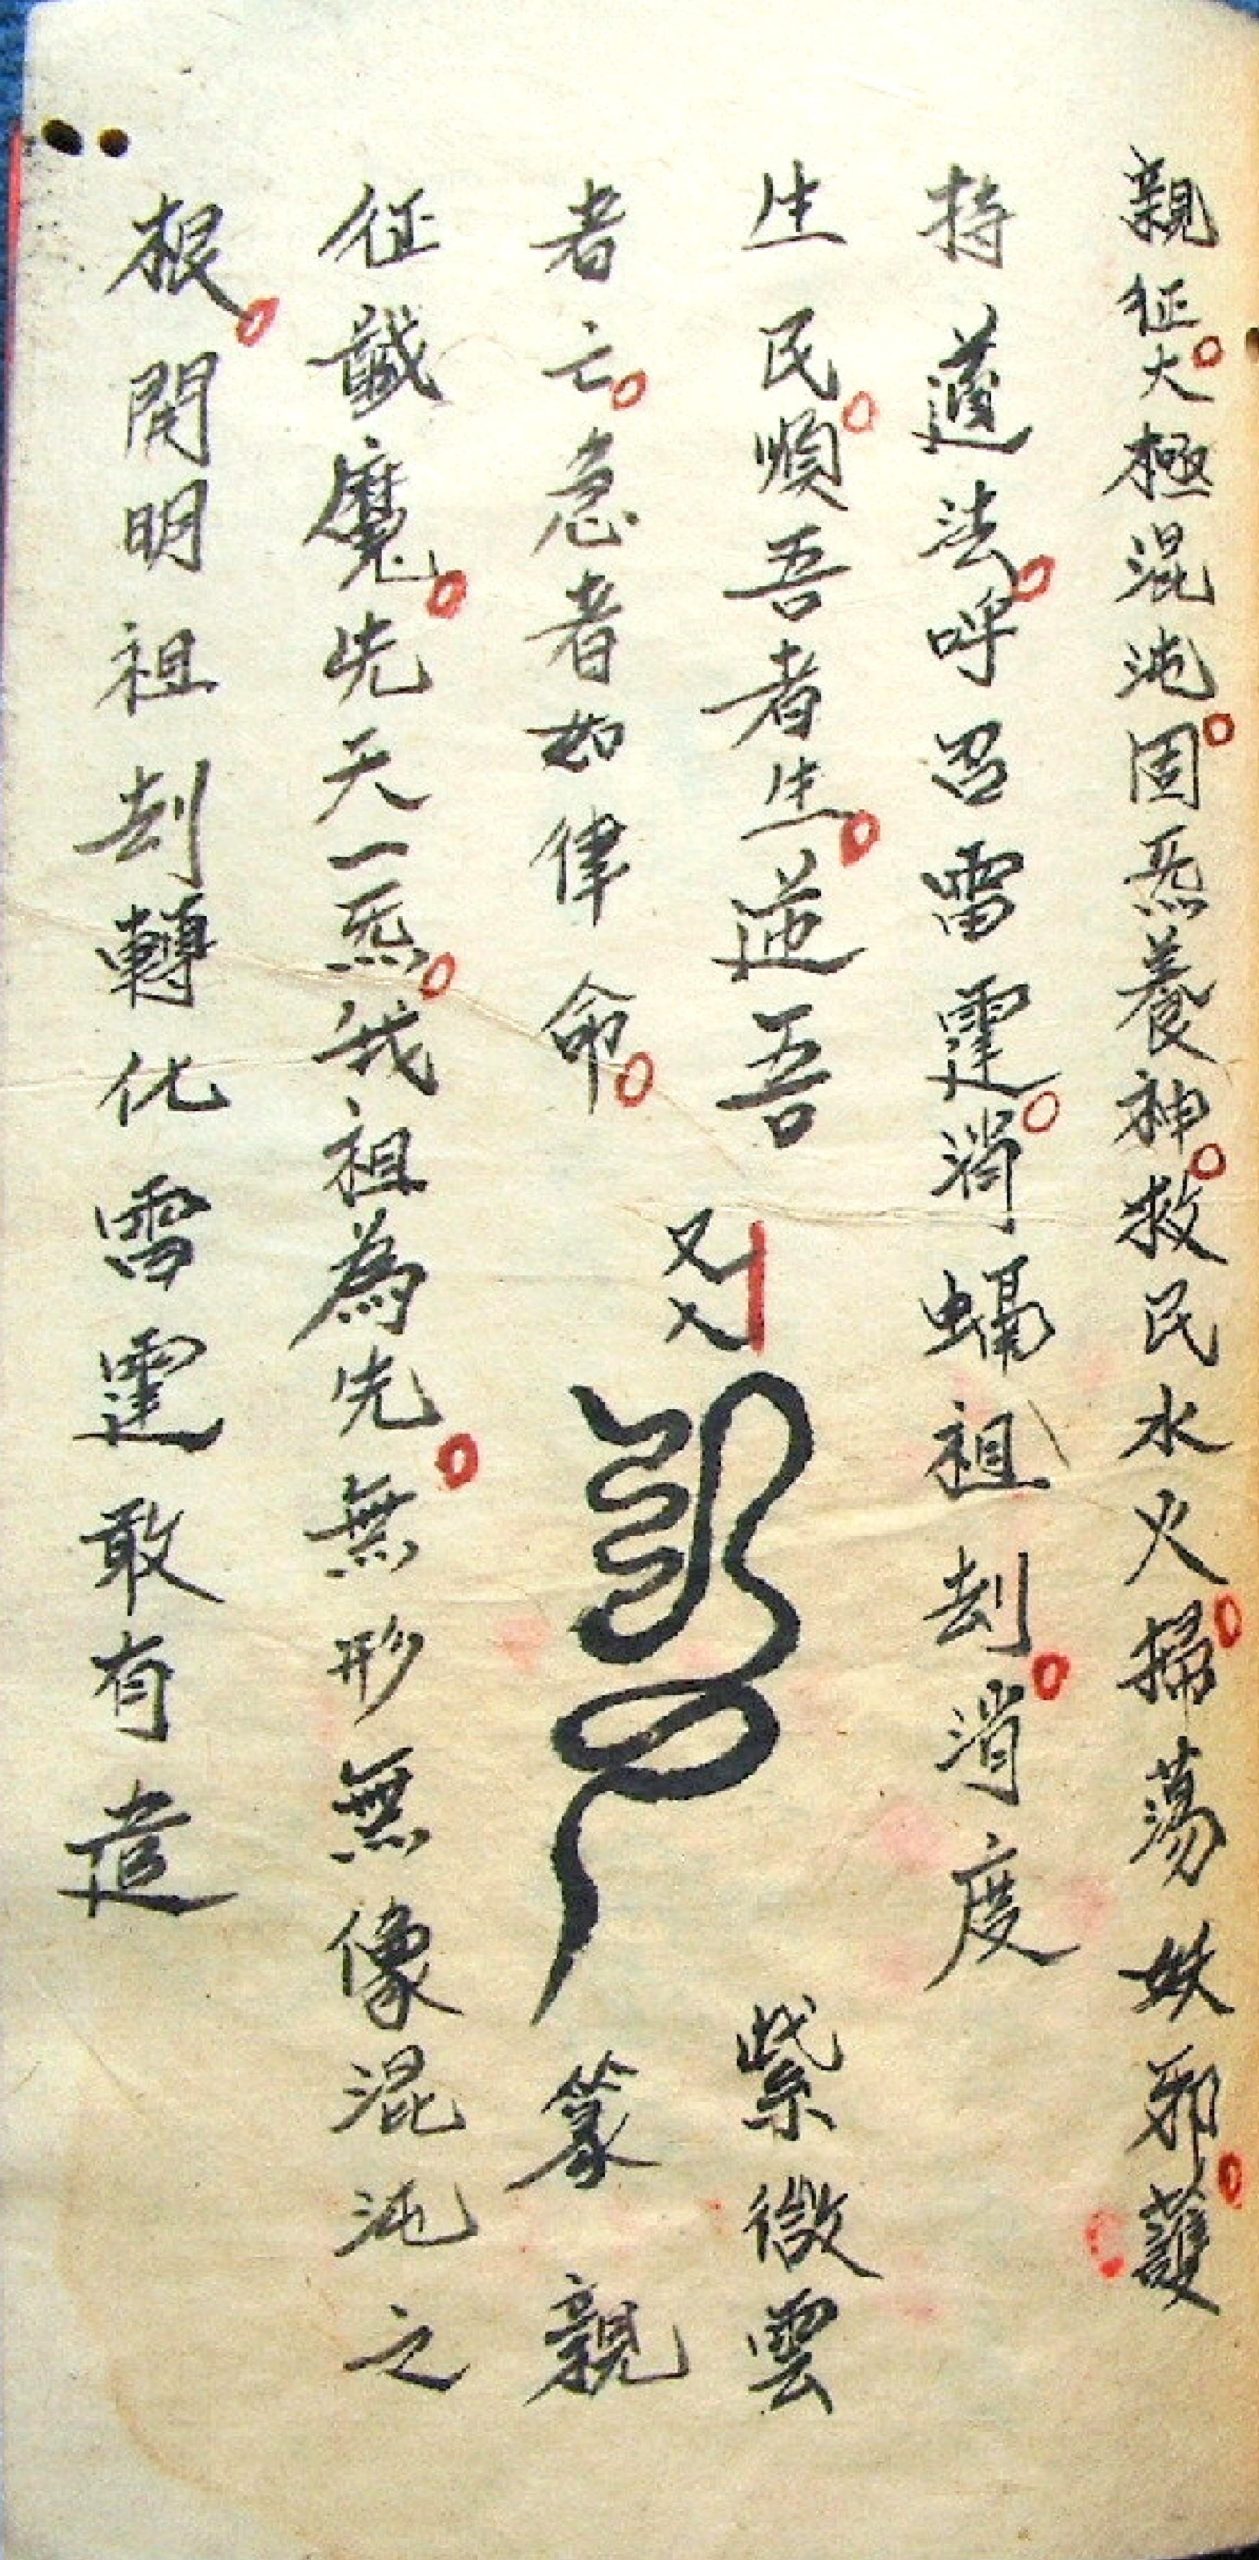 親征大極混沌固炁養神救民水火掃蕩妖邪護
持道法呼召雷霆消 祖刦消度
生民順吾者生逆吾
者亡急者如律命
又入
紫微雲
篆親
征 魔先天一炁我祖為先無形無像混沌之
根開明祖刦轉化雷霆敢有違